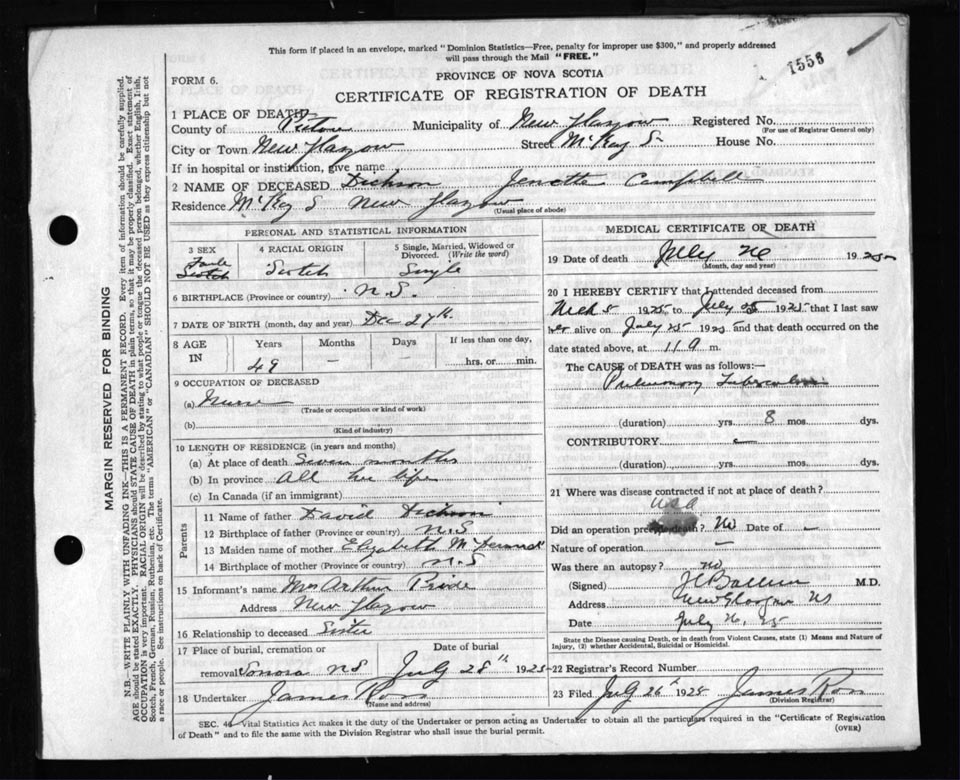 This form if placed in an envelope, marked "Dominion Statistics—Free, penalty for improper use $300," and properly addressed
will pass through the Mail "FREE."
1553
PROVINCE OF NOVA SCOTIA
FORM 6.
CERTIFICATE OF REGISTRATION OF DEATH
MARGIN RESERVED FOR BINDING
N.B.—WRITE PLAINLY WITH UNFADING INK—THIS IS A PERMANENT RECORD. Every item of information should be carefully supplied.
AGE should be stated EXACTLY. PHYSICIANS should STATE CAUSE OF DEATH in plain terms, so that it may be properly classified. Exact statement of
OCCUPATION is very important. RACIAL ORIGIN will be described by stating to what people or tongue the deceased person belonged, whether English, Irish,
Scotch, French, German, Russian, Ruthenian, etc. The terms "AMERICAN" or "CANADIAN" SHOULD NOT BE USED as they express citizenship but not
a race or people. See instructions on back of Certificate.
1 PLACE OF DEATH
County of Pictou Municipality of New Glasgow Registered No.
(For use of Registrar General only)
City or Town New Glasgow Street McKay S. House No.
If in hospital or institution, give name
2 NAME OF DECEASED Dickson Jenette Campbell
Residence McKay S New Glasgow
(Usual place of abode)
PERSONAL AND STATISTICAL INFORMATION
3 SEX
Scotch
4 RACIAL ORIGIN
Scotch
5 Single, Married, Widowed or
Divorced. (Write the word)
Single
6 BIRTHPLACE (Province or country) N.S.
7 DATE OF BIRTH (month, day and year) Dec 27th
8 AGE
IN
Years
49
Months
—
Days
—
If less than one day,
hrs. or min.
9 OCCUPATION OF DECEASED
(a) Nurse
(Trade or occupation or kind of work)
(b)
(Kind of industry)
10 LENGTH OF RESIDENCE (in years and months)
(a) At place of death Seven months
(b) In province All her life
(c) In Canada (if an immigrant)
Parents
11 Name of father David Dickson
12 Birthplace of father (Province or country) N.S
13 Maiden name of mother Elizabeth
14 Birthplace of mother (Province or country) N.S
15 Informant's name Mrs Arthur
Address New Glasgow
16 Relationship to deceased Sister
17 Place of burial, cremation or
removal Sonora NS
Date of burial
July 28th 1925
18 Undertaker James Ross
(Name and address)
MEDICAL CERTIFICATE OF DEATH
19 Date of death July 26 1925
(Month, day and year)
20 I HEREBY CERTIFY that I attended deceased from
1925 to July 25 1925 that I last saw
her alive on July 25 1925 and that death occurred on the
date stated above, at 11 a m.
The CAUSE of DEATH was as follows:—
Pulmonary Tuberculosis
(duration) yrs. 8 mos. dys.
CONTRIBUTORY —
(duration) yrs. mos. dys.
21 Where was disease contracted if not at place of death?
USA
Did an operation precede death? No Date of —
Nature of operation —
Was there an autopsy? no
(Signed) M.D.
Address New Glasgow NS
Date July 26, 25
State the Disease causing Death, or in death from Violent Causes, state (1) Means and Nature of
Injury, (2) whether Accidental, Suicidal or Homicidal.
22 Registrar's Record Number
23 Filed July 26th 1925 James Ross
(Division Registrar)
SEC. 44 Vital Statistics Act makes it the duty of the Undertaker or person acting as Undertaker to obtain all the particulars required in the "Certificate of Registration
of Death" and to file the same with the Division Registrar who shall issue the burial permit.
(OVER)